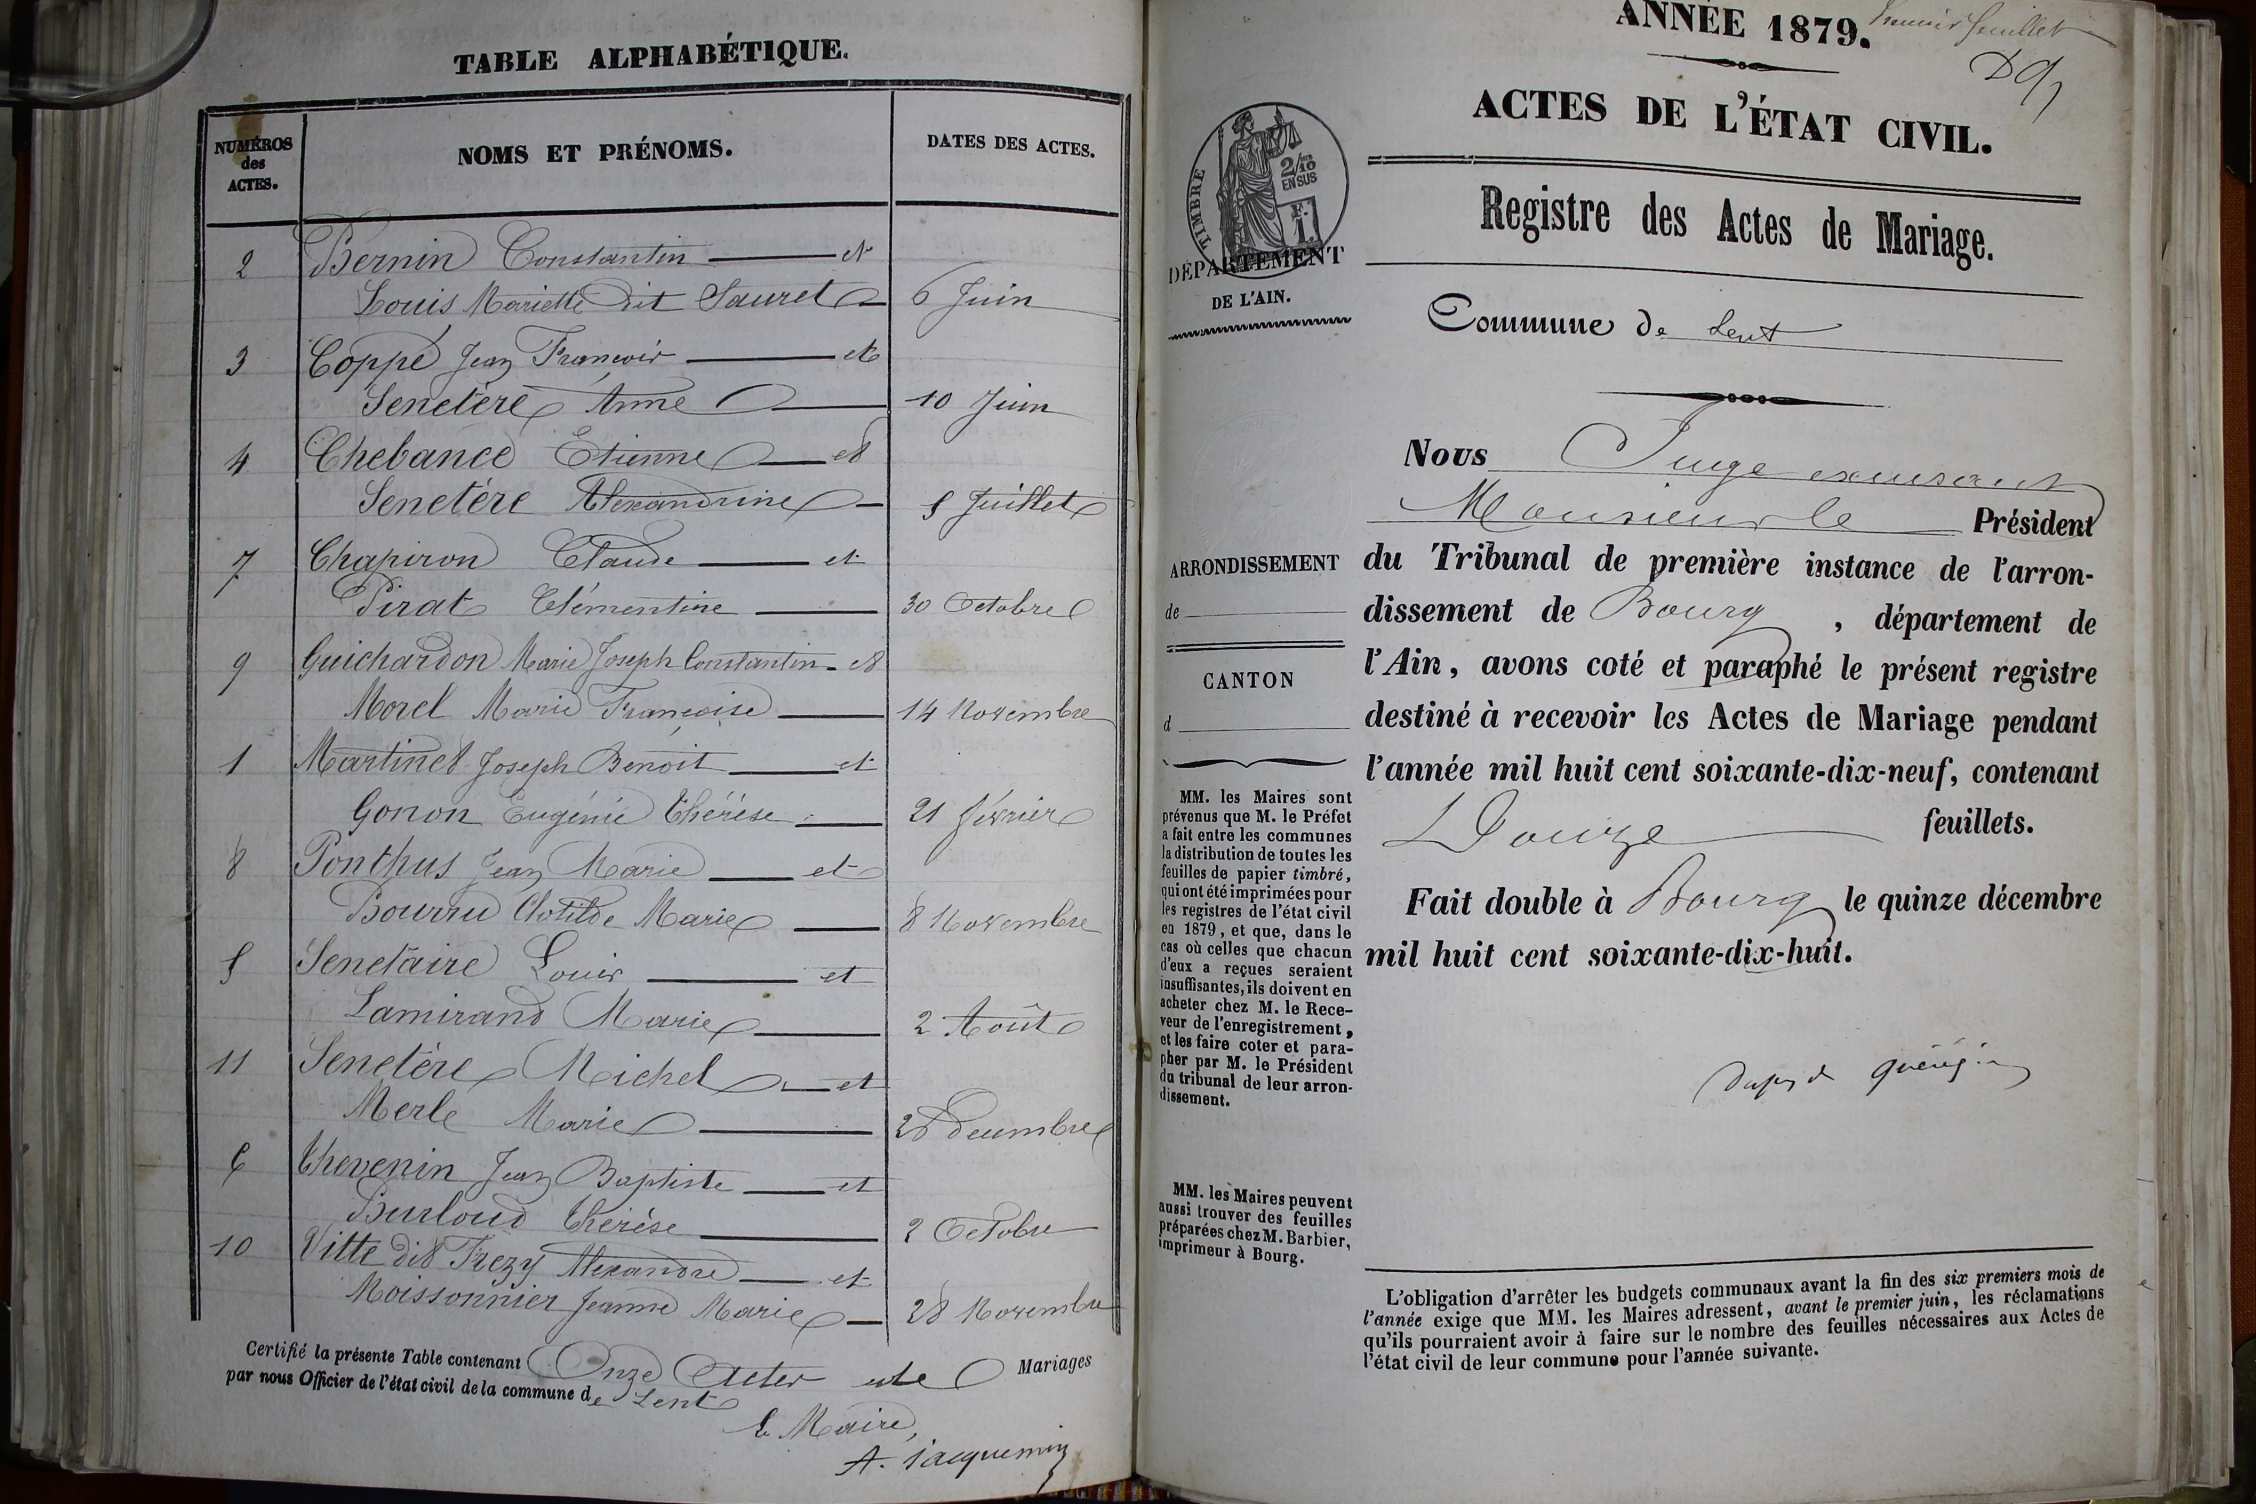 TABLE ALPHABÉTIQUE.
NUMÉROS
des
ACTES.
NOMS ET PRÉNOMS.
DATES DES ACTES.
2 Bernin Constantin et
Louis Mariette dit Sauret 6 Juin
3 Coppé Jean François et
Senetère Anne 10 Juin
4 Chebance Etienne et
Senetère Alexandrine 5 Juillet
7 Chapiron Claude et
Pirat Clémentine 30 Octobre
9 Guichardon Marie Joseph Constantin et
Morel Marie Françoise 14 Novembre
1 Martinet Joseph Benoit et
Gonon Eugénie Thérèse 21 février
8 Ponthus Jean Marie et
Bourru Clotilde Marie 8 Novembre
5 Senetaire Louis et
Lamirand Marie 2 Août
11 Senetère Michel et
Merle Marie 28 Decembre
6 Thevenin Jean Baptiste et
Burloud Thérèse 2 Octobre
10 Vitte dit Trezy Alexandre et
Moissonnier Jeanne Marie 28 Novembre
Certifié la présente Table contenant Onze Actes de Mariages
par nous Officier de l'état civil de la commune de Lent
Le Maire,
A. Jacquemin
ANNÉE 1879.
feuillet
ACTES DE L'ÉTAT CIVIL.
Registre des Actes de Mariage.
TIMBRE
2/10
EN SUS
DÉPARTEMENT
DE L'AIN.
Commune de Lent
Nous Juge
Monsieur le Président
du Tribunal de première instance de l'arron-
dissement de Bourg, département de
l'Ain, avons coté et paraphé le présent registre
destiné à recevoir les Actes de Mariage pendant
l'année mil huit cent soixante-dix-neuf, contenant
Douze feuillets.
Fait double à Bourg le quinze décembre
mil huit cent soixante-dix-huit.
ARRONDISSEMENT
de
CANTON
d
MM. les Maires sont
prévenus que M. le Préfet
a fait entre les communes
la distribution de toutes les
feuilles de papier timbré,
qui ont été imprimées pour
les registres de l'état civil
en 1879, et que, dans le
cas où celles que chacun
d'eux a reçues seraient
insuffisantes, ils doivent en
acheter chez M. le Rece-
veur de l'enregistrement,
et les faire coter et para-
pher par M. le Président
du tribunal de leur arron-
dissement.
MM. les Maires peuvent
aussi trouver des feuilles
préparées chez M. Barbier,
imprimeur à Bourg.
L'obligation d'arrêter les budgets communaux avant la fin des six premiers mois de
l'année exige que MM. les Maires adressent, avant le premier juin, les réclamations
qu'ils pourraient avoir à faire sur le nombre des feuilles nécessaires aux Actes de
l'état civil de leur commune pour l'année suivante.